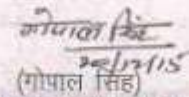 गोपाल सिंह
(गोपाल सिंह)